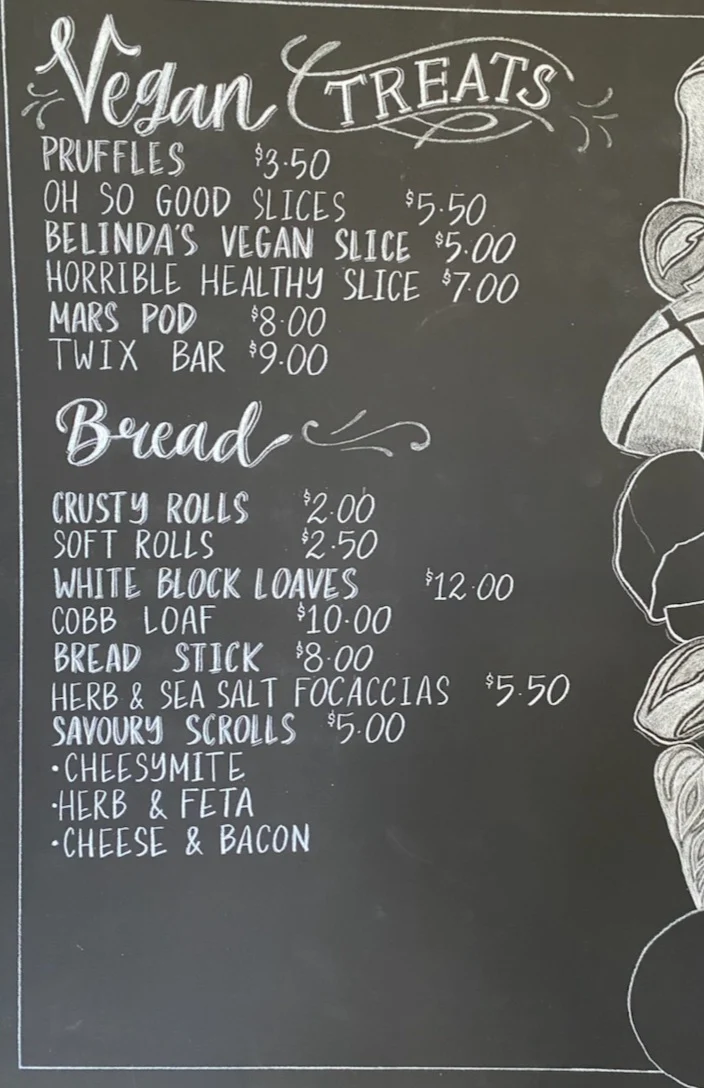 Vegan TREATS
PRUFFLES $3.50
OH SO GOOD SLICES $5.50
BELINDA'S VEGAN SLICE $5.00
HORRIBLE HEALTHY SLICE $7.00
MARS POD $8.00
TWIX BAR $9.00
Bread
CRUSTY ROLLS $2.00
SOFT ROLLS $2.50
WHITE BLOCK LOAVES $12.00
COBB LOAF $10.00
BREAD STICK $8.00
HERB & SEA SALT FOCACCIAS $5.50
SAVOURY SCROLLS $5.00
·CHEESYMITE
·HERB & FETA
·CHEESE & BACON